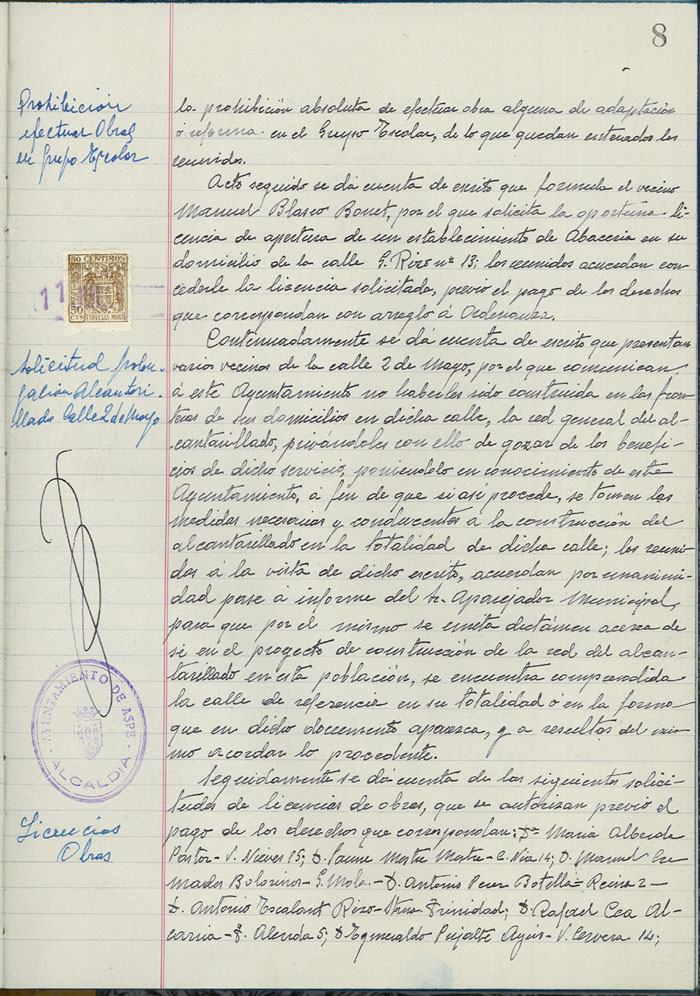 8
Prohibición
efectuar Obras
en Grupo Escolar
la prohibición absoluta de efectuar obra alguna de adaptación
ó reforma en el Grupo Escolar, de lo que quedan enterados los
reunidos.
Acto seguido se dá cuenta de escrito que formula el vecino
Manuel Blasco Bonet, por el que solicita la oportuna li-
cencia de apertura de un establecimiento de Abaceria en su
domicilio de la calle G. Rizo nº 13; los reunidos acuerdan con-
cederle la licencia solicitada, previo el pago de los derechos
que correspondan con arreglo á Ordenanza.
50 CENTIMOS
50
CTS ESPECIAL MOVIL
11
Solicitud prolon-
gación Alcantari-
llado Calle 2 de Mayo
Continuadamente se dá cuenta de escrito que presentan
varios vecinos de la calle 2 de Mayo, por el que comunican
á este Ayuntamiento no haberles sido construida en las fron-
teras de sus domicilios en dicha calle, la red general del al-
cantarillado, privándoles con ello de gozar de los benefi-
cios de dicho servicio, poniendolo en conocimiento de este
Ayuntamiento, a fin de que si así procede, se tomen las
medidas necesarias y conducentes a la construcción del
alcantarillado en la totalidad de dicha calle; los reuni-
dos á la vista de dicho escrito, acuerdan por unanimi-
dad pase á informe del Sr. Aparejador Municipal,
para que por el mismo se emita dictámen acerca de
si en el proyecto de construcción de la red del alcan-
tarillado en esta población, se encuentra comprendida
la calle de referencia en su totalidad ó en la forma
que en dicho documento aparezca, y a resultas del mis-
mo acordar lo procedente.
AYUNTAMIENTO DE ASPE
ALCALDIA
Licencias
Obras
Seguidamente se dá cuenta de las siguientes solici-
tudes de licencias de obras, que se autorizan previo el
pago de los derechos que correspondan: Dª Maria Alberola
Pastor - V. Nieves 15; D. Jaume Mestre Mestre - C. Nia 14; D. Manuel Cre-
mades Bolorinos - G. Mola. - D. Antonio Perez Botella = Reina 2 -
D. Antonio Escalant Rizo - Stma Trinidad; D. Rafael Cea Al-
carria - F. Alenda 5; D. Esmeraldo Pujalte - V. Cervera 14;